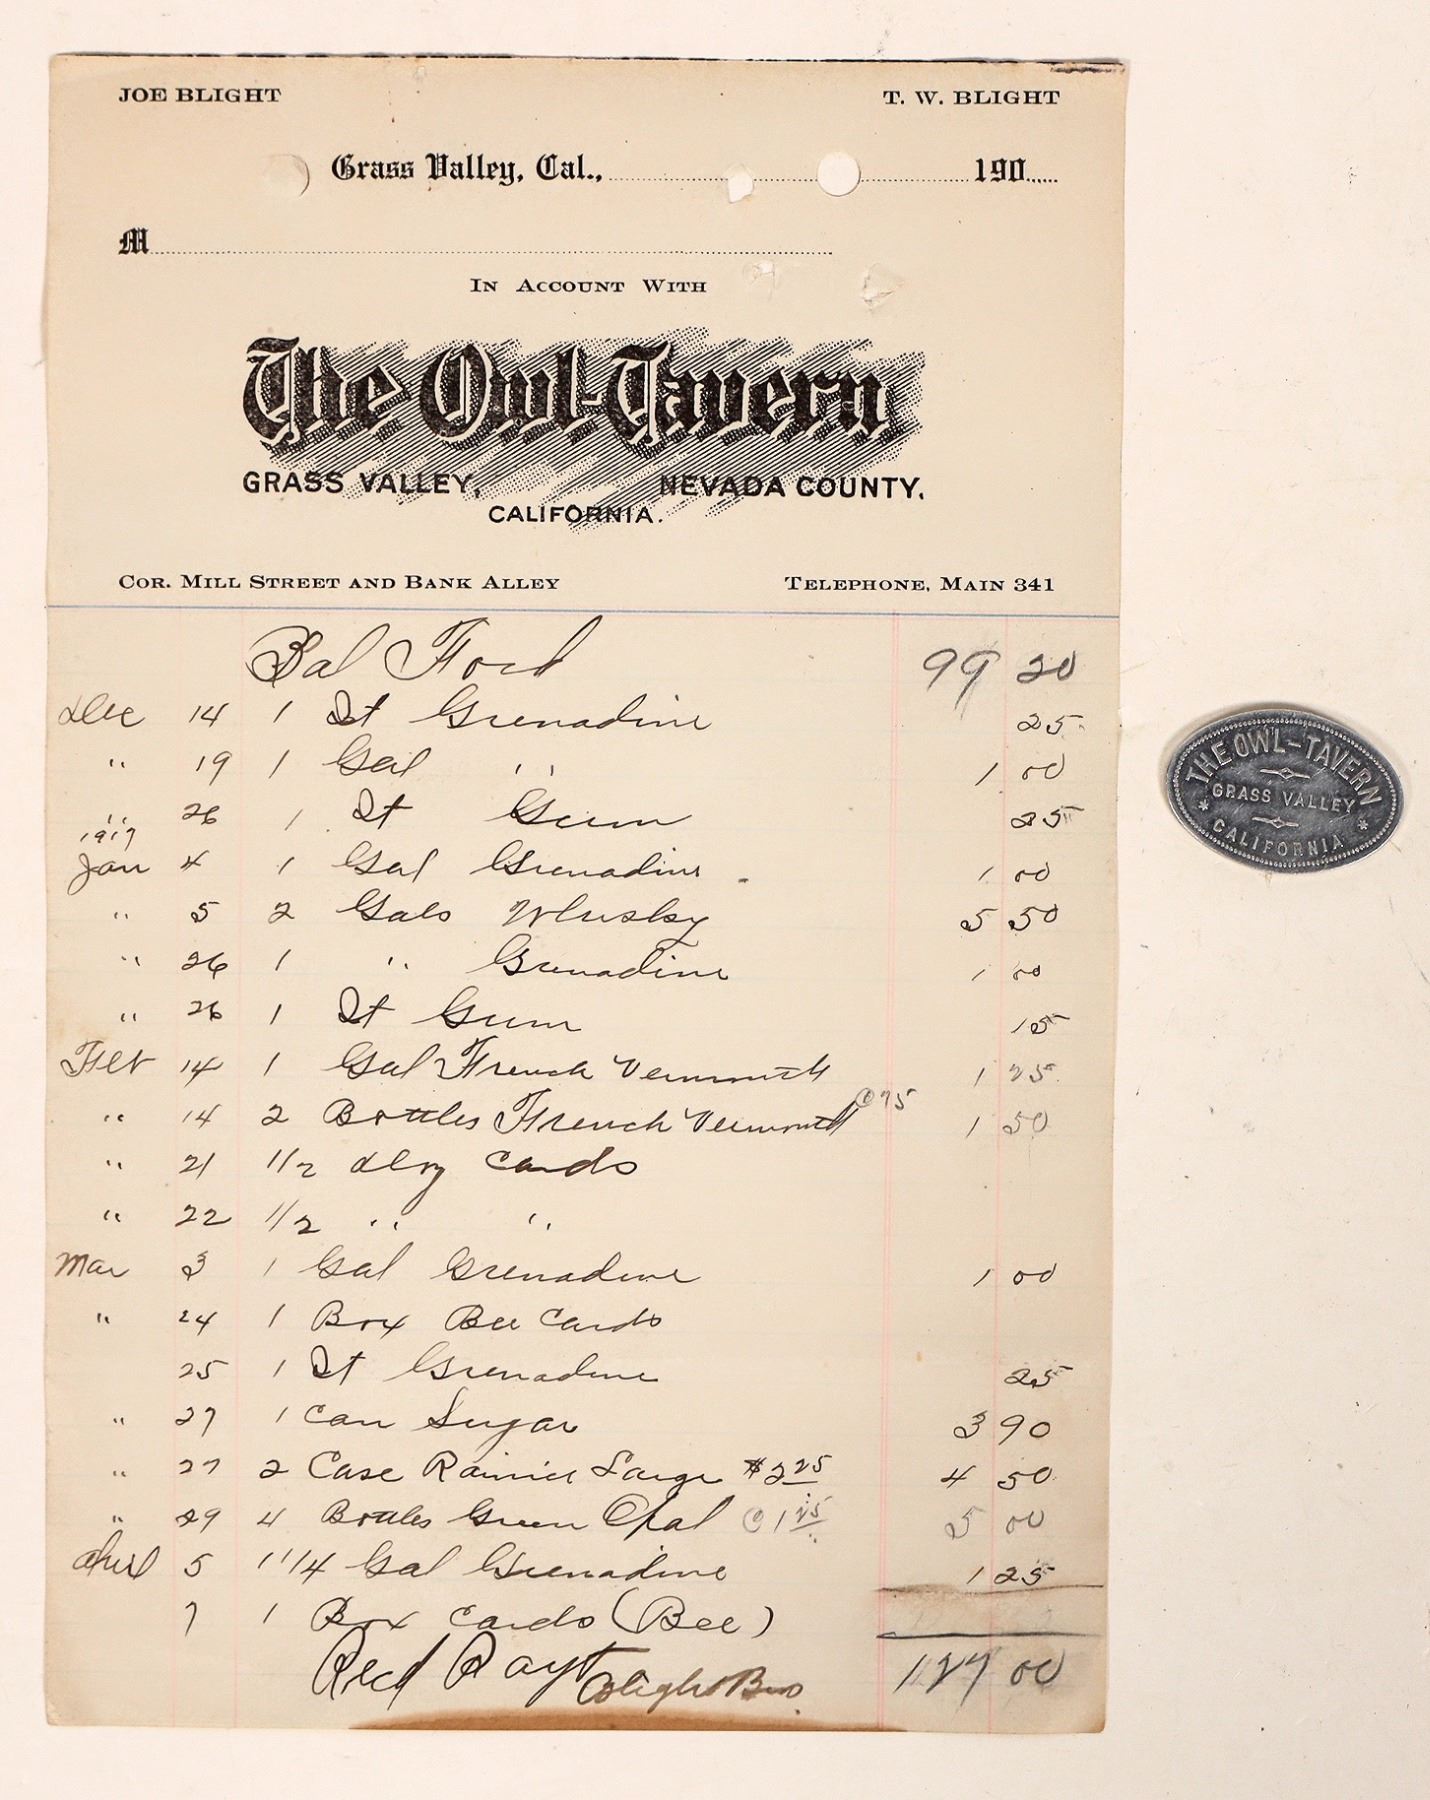 JOE BLIGHT T. W. BLIGHT
Grass Valley, Cal., 190
M
IN ACCOUNT WITH
The Owl-Tavern
GRASS VALLEY, NEVADA COUNTY,
CALIFORNIA.
COR. MILL STREET AND BANK ALLEY TELEPHONE, MAIN 341
Bal Ford 99 20
Dec 14 1 Qt Grenadine 25
" 19 1 Gal " 1 00
" 26 1 Qt Gum 25
1917
Jan 4 1 Gal Grenadine 1 00
" 5 2 Gals Whisky 5 50
" 26 1 " Grenadine 1 00
" 26 1 Qt Gum
Feb 14 1 Gal French Vermouth 1 25
" 14 2 Bottles French Vermouth @ 75 1 50
" 21 1/2 doz Cards
" 22 1/2 " "
Mar 3 1 Gal Grenadine 1 00
" 24 1 Box Bee Cards
25 1 Qt Grenadine 25
" 27 1 can Sugar 3 90
" 27 2 Case Rainier Large $2 25 4 50
" 29 4 Bottles Green Chal @ 1 25 5 00
April 5 1 1/4 Gal Grenadine 1 25
7 1 Box Cards (Bee)
Recd Payt Blight Bros 127 00
THE OWL-TAVERN
GRASS VALLEY
CALIFORNIA